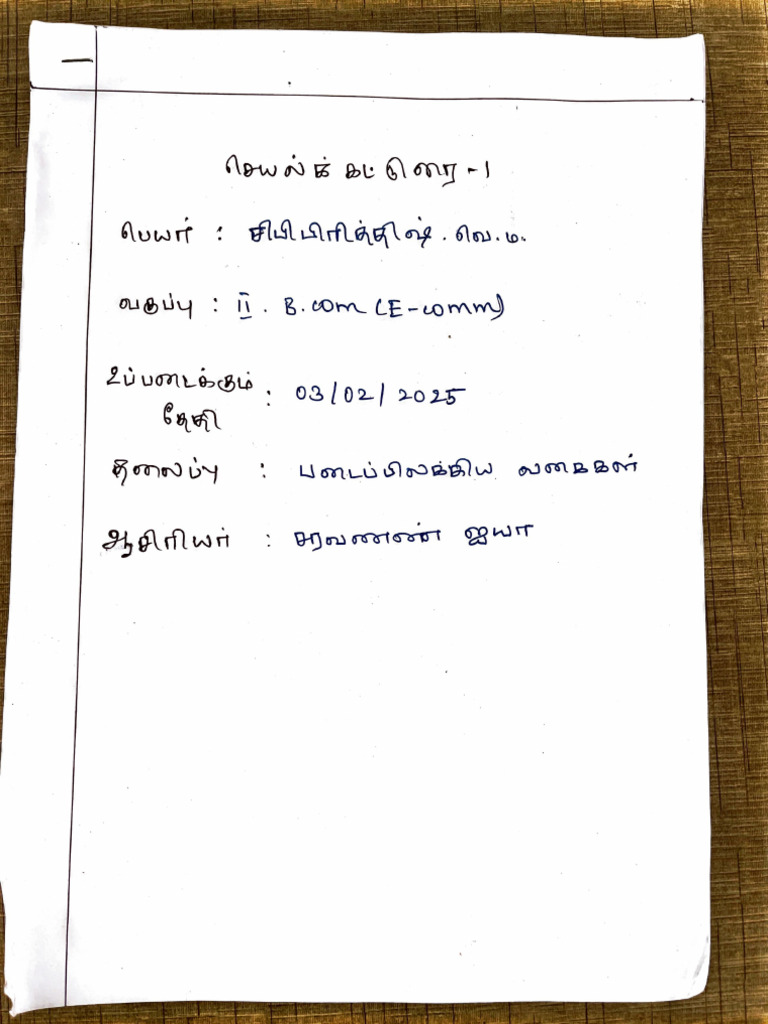 செயல்க் கட்டுரை - 1
பெயர் : சிபிபிரித்திஷ். வெ. ம.
வகுப்பு : II. B.com (E-comm)
உப்படைக்கும்
தேதி : 03/02/2025
தலைப்பு : படைப்பிலக்கிய வகைகள்
ஆசிரியர் : சரவணண் ஐயா